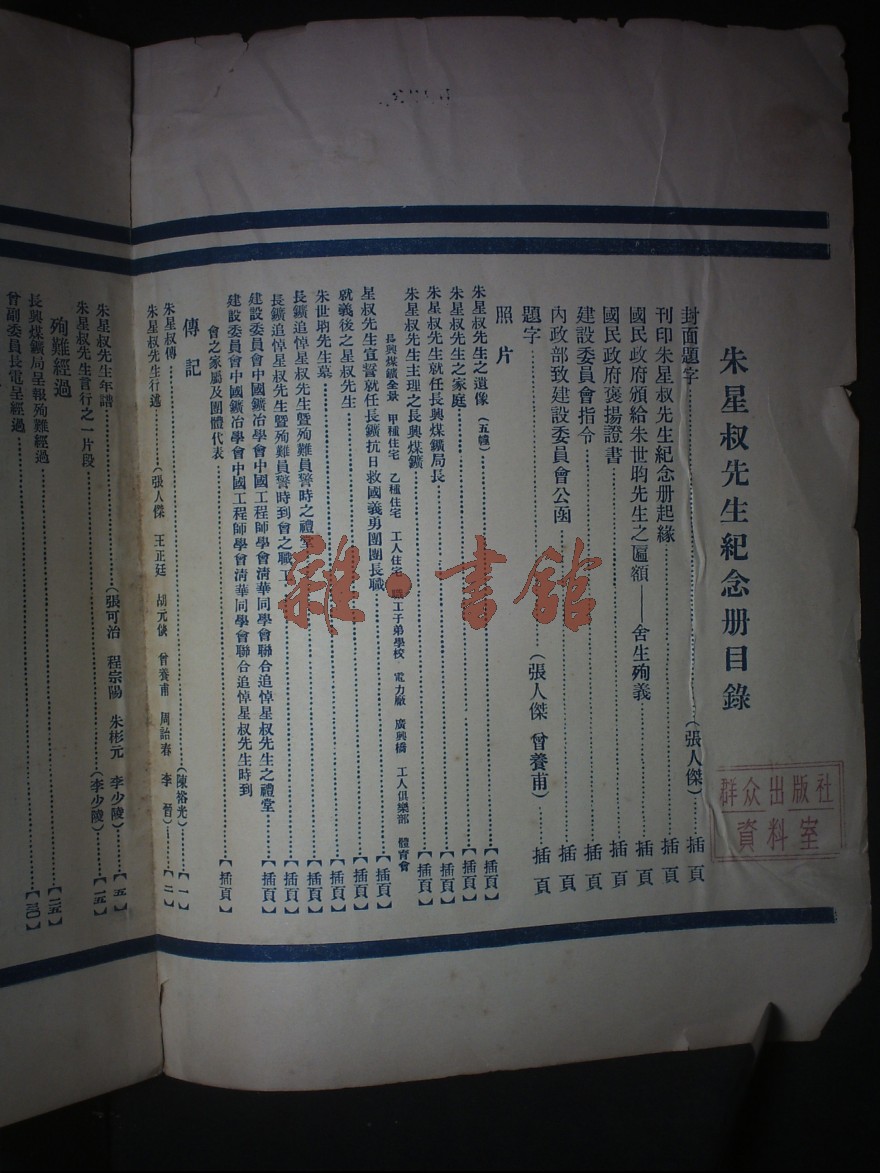 朱星叔先生紀念册目錄
封面題字……(張人傑)……插頁
刊印朱星叔先生紀念册起緣……插頁
國民政府頒給朱世昀先生之匾額——舍生殉義……插頁
國民政府褒揚證書……插頁
建設委員會指令……插頁
內政部致建設委員會公函……插頁
題字……(張人傑 曾養甫)……插頁
照片
朱星叔先生之遺像(五幀)……【插頁】
朱星叔先生之家庭……【插頁】
朱星叔先生就任長興煤鑛局長……【插頁】
朱星叔先生主理之長興煤鑛……【插頁】
長興煤鑛全景 甲種住宅 乙種住宅 工人住宅 職工子弟學校 電力廠 廣興橋 工人俱樂部 體育會
星叔先生宣誓就任長鑛抗日救國義勇團團長職……【插頁】
就義後之星叔先生……【插頁】
朱世昀先生墓……【插頁】
長鑛追悼星叔先生暨殉難員警時之禮堂……【插頁】
長鑛追悼星叔先生暨殉難員警時到會之職工……【插頁】
建設委員會中國鑛冶學會中國工程師學會淸華同學會聯合追悼星叔先生之禮堂……【插頁】
建設委員會中國鑛冶學會中國工程師學會淸華同學會聯合追悼星叔先生時到
會之家屬及團體代表……【插頁】
傳記
朱星叔傳……(陳裕光)……【一】
朱星叔先生行述……(張人傑 王正廷 胡元倓 曾養甫 周詒春 李晉)……【二】
朱星叔先生年譜……(張可治 程宗陽 朱彬元 李少陵)……【五】
朱星叔先生言行之一片段……(李少陵)……【一五】
殉難經過
長興煤鑛局呈報殉難經過……【二五】
曾副委員長電呈經過……【三〇】
雜·書館
群众出版社
資料室